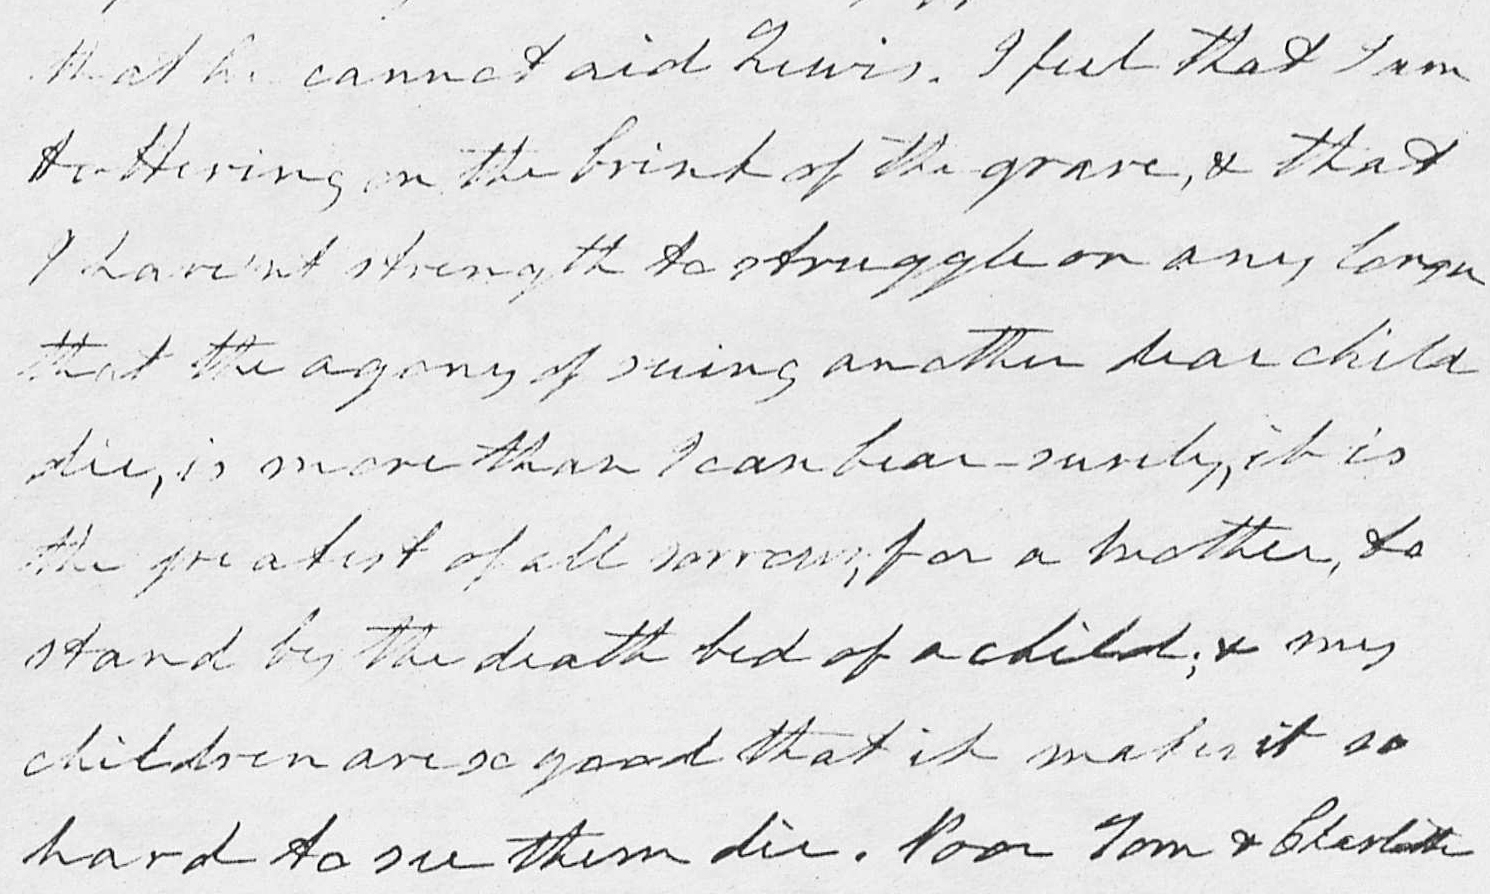 that he cannot aid Lewis. I feel that I am
tottering on the brink of the grave, & that
I have'nt strength to struggle on any longer
that the agony of seeing another dear child
die, is more than I can bear - surely, it is
the greatest of all sorrows, for a mother, to
stand by the death bed of a child; & my
children are so good that it makes it so
hard to see them die. Poor Tom & Charlotte